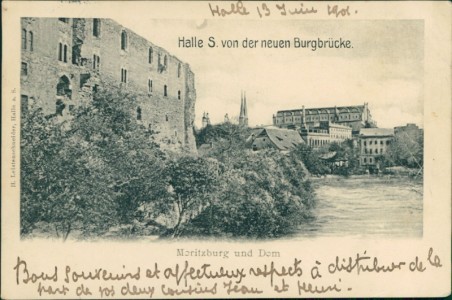 Halle 13 Juin 1901.
Halle S. von der neuen Burgbrücke.
H. Halle a. S.
Moritzburg und Dom
Bons Souvenirs et affectueux respects à distribuer de la
part de vos deux cousins Jean et Henri.